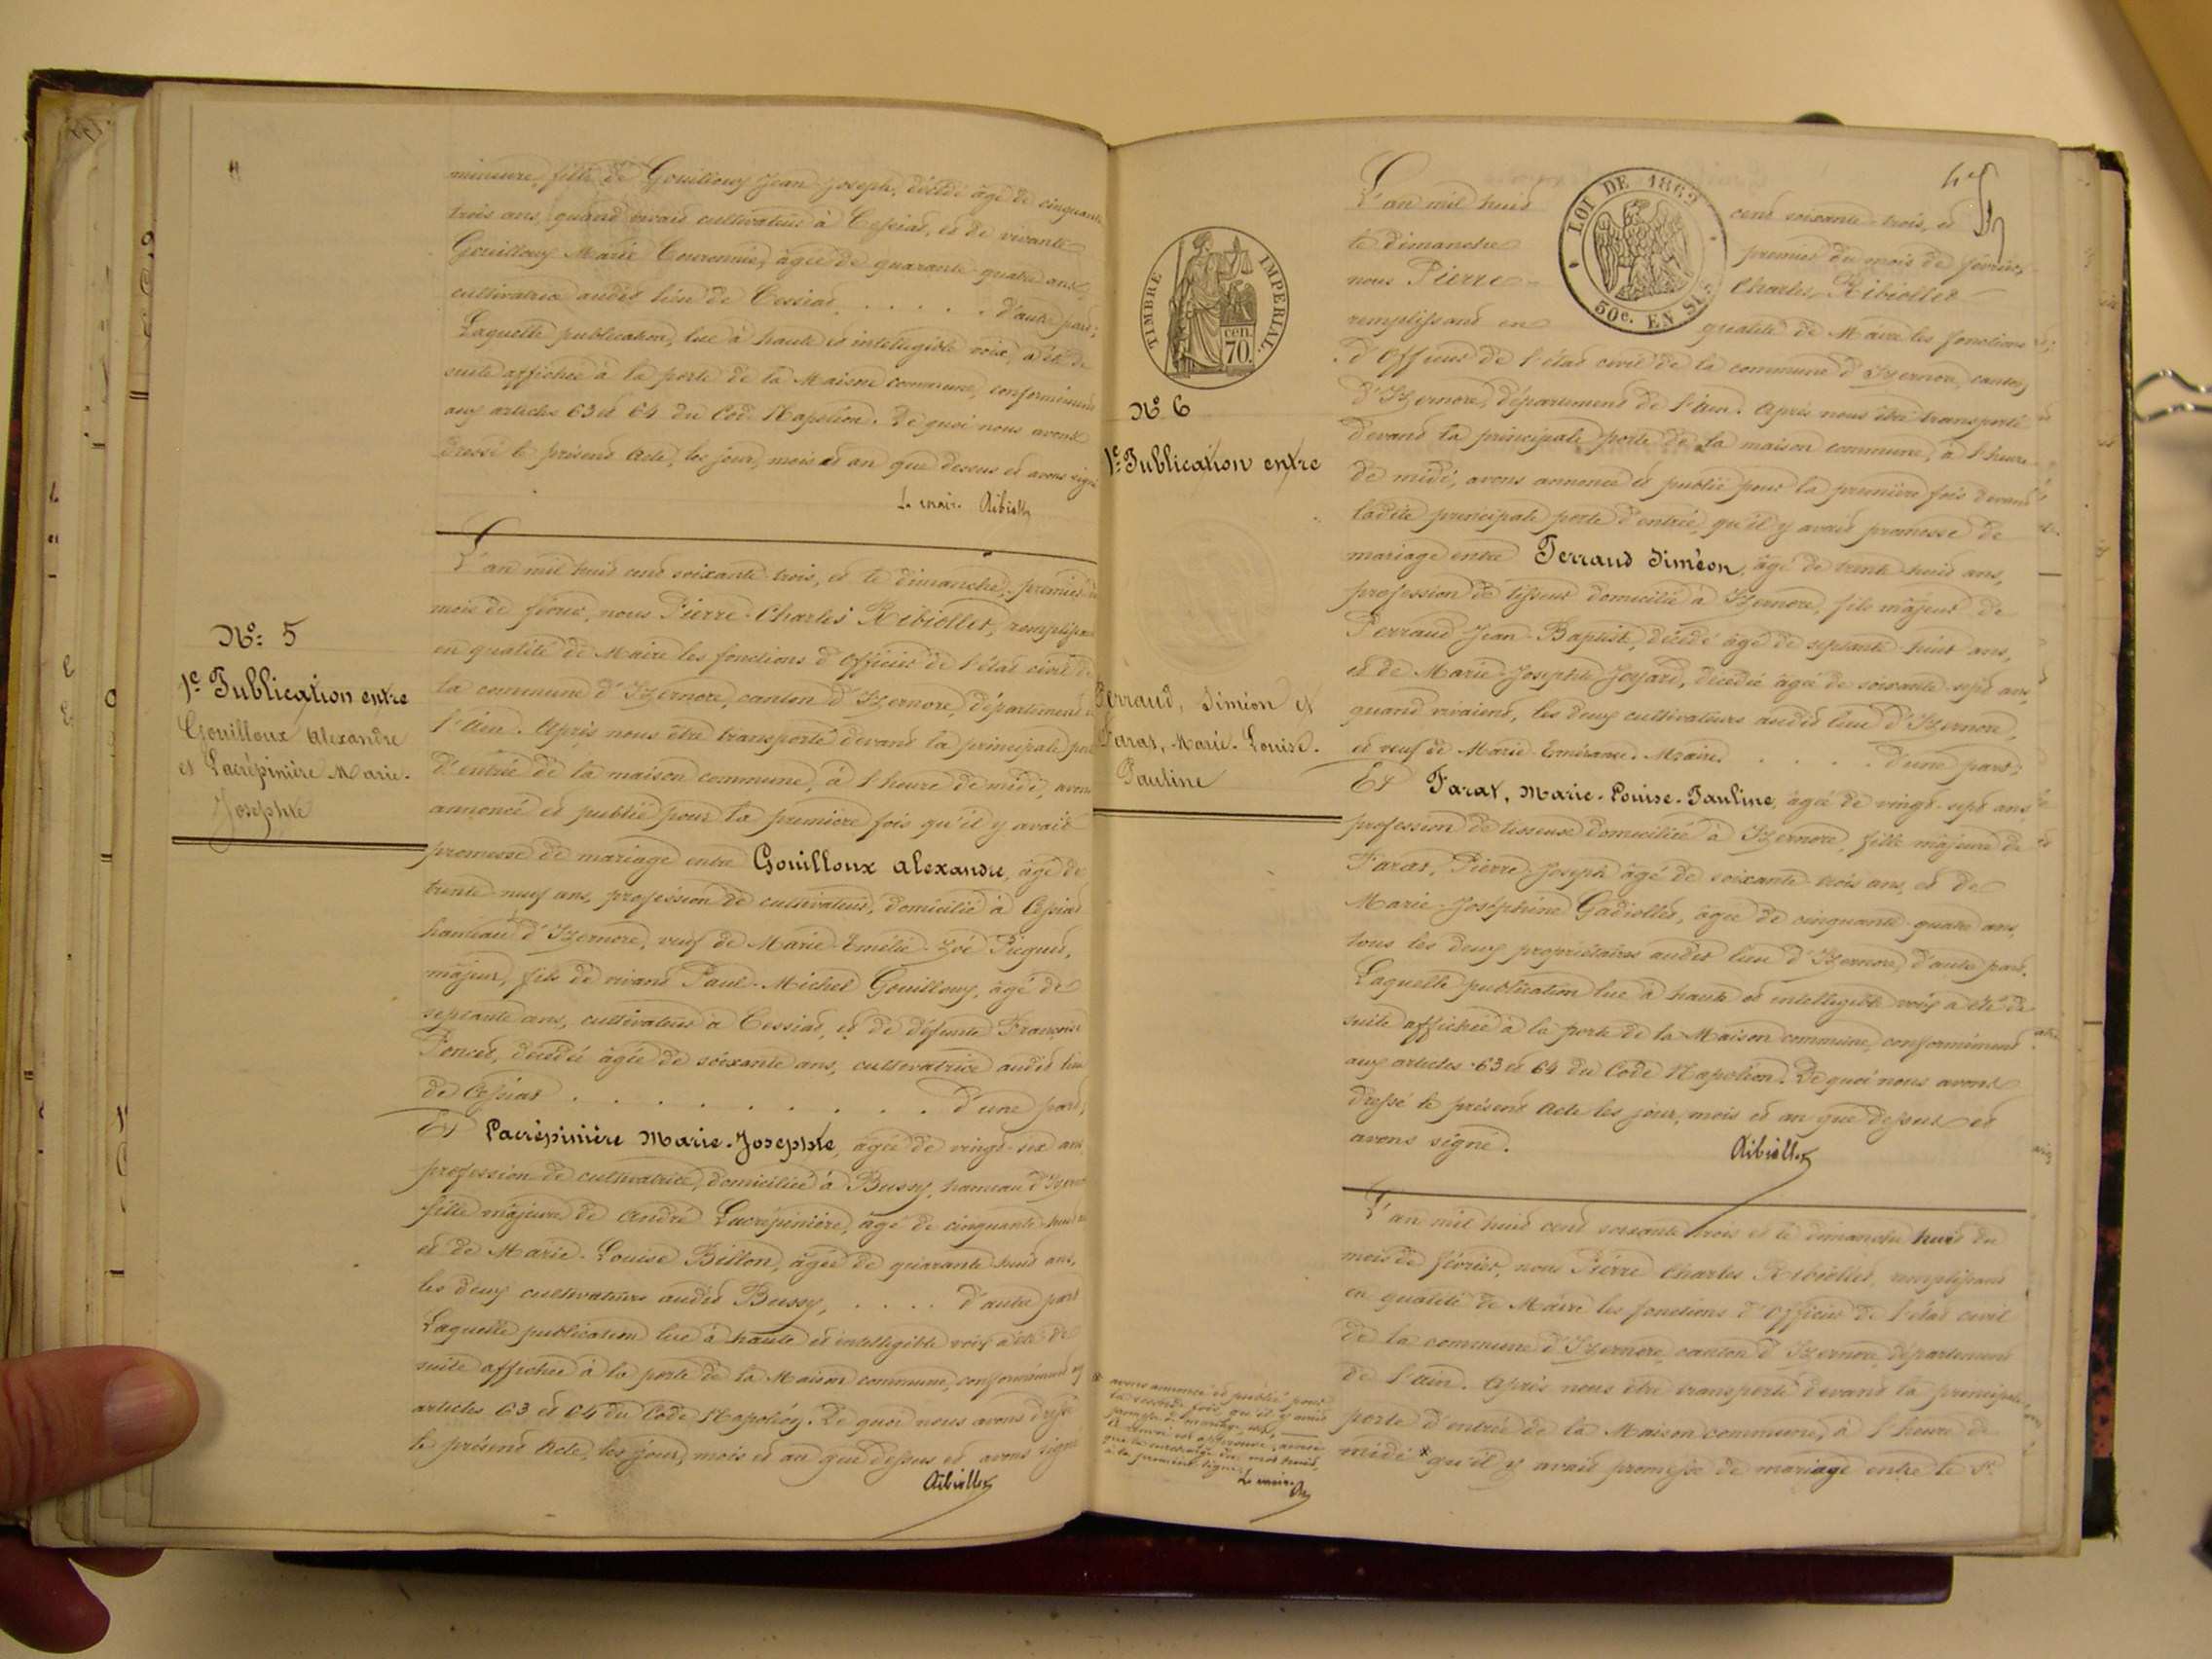 mineure, fille de Gouilloux Jean-Joseph, décédé âgé de cinquante
trois ans, quand vivait cultivateur à Cessiat, et de vivante
Gouilloux Marie Couronnie, âgée de quarante quatre ans,
cultivatrice audit lieu de Cessiat . . . . . d'autre part;
Laquelle publication, lue à haute et intelligible voix, a été de
suite affichée à la porte de la Maison commune, conformément
aux articles 63 et 64 du Code Napoléon. De quoi nous avons
dressé le présent Acte, les jour, mois et an que dessus et avons signé
Le maire Ribiollet
L'an mil huit cent soixante trois, et le dimanche, premier du
mois de février, nous Pierre-Charles Ribiollet, remplissant
en qualité de Maire les fonctions d'Officier de l'état civil de
la commune d'Izernore, canton d'Izernore, département de
l'Ain. Après nous être transporté devant la principale porte
d'entrée de la maison commune, à l'heure de midi, avons
annoncé et publié pour la première fois qu'il y avait
promesse de mariage entre Gouilloux Alexandre, âgé de
trente neuf ans, profession de cultivateur, domicilié à Cessiat
hameau d'Izernore, veuf de Marie-Emélie-Zoé Picquet,
majeur, fils de vivant Paul-Michel Gouilloux, âgé de
septante ans, cultivateur à Cessiat, et de défunte Françoise
Poncet, décédée âgée de soixante ans, cultivatrice audit lieu
de Cessiat . . . . . . . . . d'une part;
Et Lacrépinière Marie-Josephte, âgée de vingt-six ans
profession de cultivatrice, domiciliée à Bussy, hameau d'Izernore
fille majeure de André Lacrépinière, âgé de cinquante-huit
et de Marie-Louise Billon, âgée de quarante huit ans,
les deux cultivateurs audit Bussy, . . . . d'autre part
Laquelle publication lue à haute et intelligible voix a été de
suite affichée à la porte de la Maison commune, conformément aux
articles 63 et 64 du Code Napoléon. De quoi nous avons dressé
le présent Acte, les jour, mois et an que dessus et avons signé
Ribiollet
N°: 5
1e Publication entre
Gouilloux Alexandre
et Lacrépinière Marie-
Josephte
TIMBRE IMPERIAL
cen.
70.
N° 6
1e Publication entre
Perraud, Siméon et
Farat, Marie-Louise-
Pauline
LOI DE 1862
50c. EN SUS
L'an mil huit cent soixante-trois, et
le dimanche premier du mois de février,
nous Pierre Charles Ribiollet
remplissant en qualité de Maire les fonctions
d'Officier de l'état civil de la commune d'Izernore, canton
d'Izernore, département de l'Ain. Après nous être transporté
devant la principale porte de la maison commune, à l'heure
de midi, avons annoncé et publié pour la première fois devant
ladite principale porte d'entrée, qu'il y avait promesse de
mariage entre Perraud Siméon, âgé de trente huit ans,
profession de tisseur domicilié à Izernore, fils majeur de
Perraud Jean-Baptiste, décédé âgé de septante-huit ans,
et de Marie-Josephte Joyard, décédée âgée de soixante-sept ans,
quand vivaient, les deux cultivateurs audit lieu d'Izernore,
et veuf de Marie-Emérance Maire . . . . d'une part;
Et Farat, Marie-Louise-Pauline, âgée de vingt-sept ans
profession de tisseuse domiciliée à Izernore, fille majeure de
Farat, Pierre-Joseph âgé de soixante trois ans, et de
Marie-Joséphine Gadiollet, âgée de cinquante-quatre ans,
tous les deux propriétaires audit lieu d'Izernore, d'autre part.
Laquelle publication lue à haute et intelligible voix a été de
suite affichée à la porte de la Maison commune, conformément
aux articles 63 et 64 du Code Napoléon. De quoi nous avons
dressé le présent Acte les jour, mois et an que dessus et
avons signé.
Ribiollet
L'an mil huit cent soixante trois et le dimanche huit du
mois de février, nous Pierre Charles Ribiollet, remplissant
en qualité de Maire les fonctions d'Officier de l'état civil
de la commune d'Izernore, canton d'Izernore, département
de l'Ain. Après nous être transporté devant la principale
porte d'entrée de la Maison commune, à l'heure de
midi * qu'il y avait promesse de mariage entre le Sr
* avons annoncé et publié pour
la seconde fois, qu'il y avait
promesse de mariage, etc,
renvoi est approuvé, ainsi
que la surcharge du mot huit,
à la première ligne.
Le maire